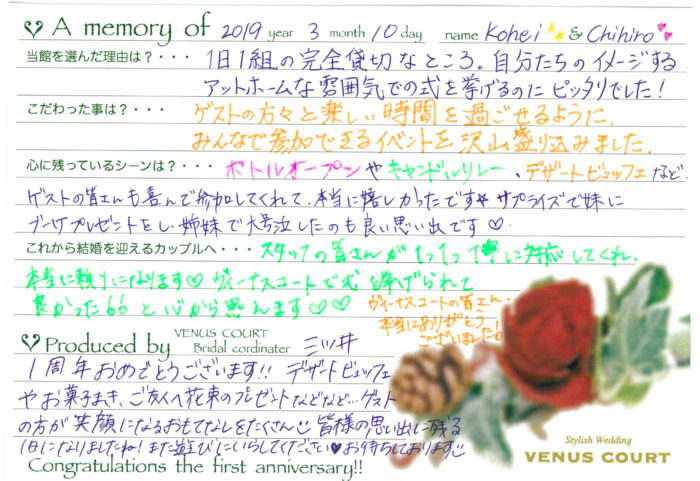 A memory of 2019 year 3 month 10 day name Kohei & Chihiro
当館を選んだ理由は？・・・ 1日1組の完全貸切なところ。自分たちのイメージする
アットホームな雰囲気での式を挙げるのにピッタリでした！
こだわった事は？・・・ ゲストの方々と楽しい時間を過ごせるように、
みんなで参加できるイベントを沢山盛り込みました。
心に残っているシーンは？・・・ ボトルオープンやキャンドルリレー、デザートビュッフェなど。
ゲストの皆さんも喜んで参加してくれて、本当に嬉しかったです サプライズで妹に
ブーケプレゼントをし、姉妹で大号泣したのも良い思い出です♡
これから結婚を迎えるカップルへ・・・ スタッフの皆さんが1つ1つ丁寧に対応してくれ、
本当に頼りになります♡ ヴィーナスコートで式を挙げられて
良かった と心から思えます♡♡
ヴィーナスコートの皆さん、
本当にありがとう
ございました！
Produced by VENUS COURT Bridal cordinater 三ツ井
1周年おめでとうございます!! デザートビュッフェ
やお菓子まき、ご友人へ花束のプレゼントなどなど…ゲスト
の方が笑顔になるおもてなしをたくさん 皆様の思い出に残る
1日になりましたね！また遊びにいらしてください♥お待ちしております
Congratulations the first anniversary!!
Stylish Wedding
VENUS COURT